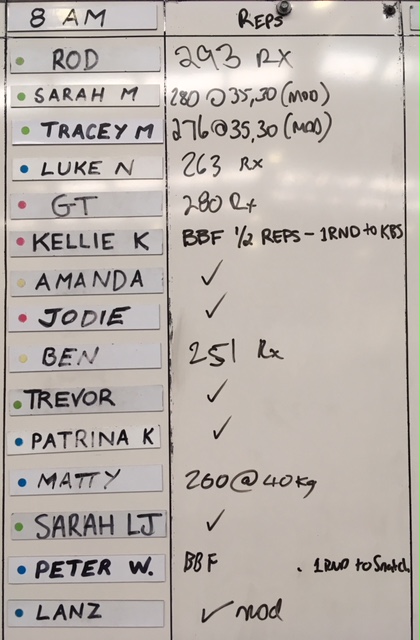 8 AM REPS
ROD 293 RX
SARAH M 280 @ 35,30 (MOD)
TRACEY M 276 @ 35,30 (MOD)
LUKE N 263 Rx
GT 280 Rx
KELLIE K BBF 1/2 REPS - 1RND to KBS
AMANDA ✓
JODIE ✓
BEN 251 Rx
TREVOR ✓
PATRINA K ✓
MATTY 260 @ 40kg
SARAH LJ ✓
PETER W. BBF . 1RND to Snatch
LANZ ✓ mod